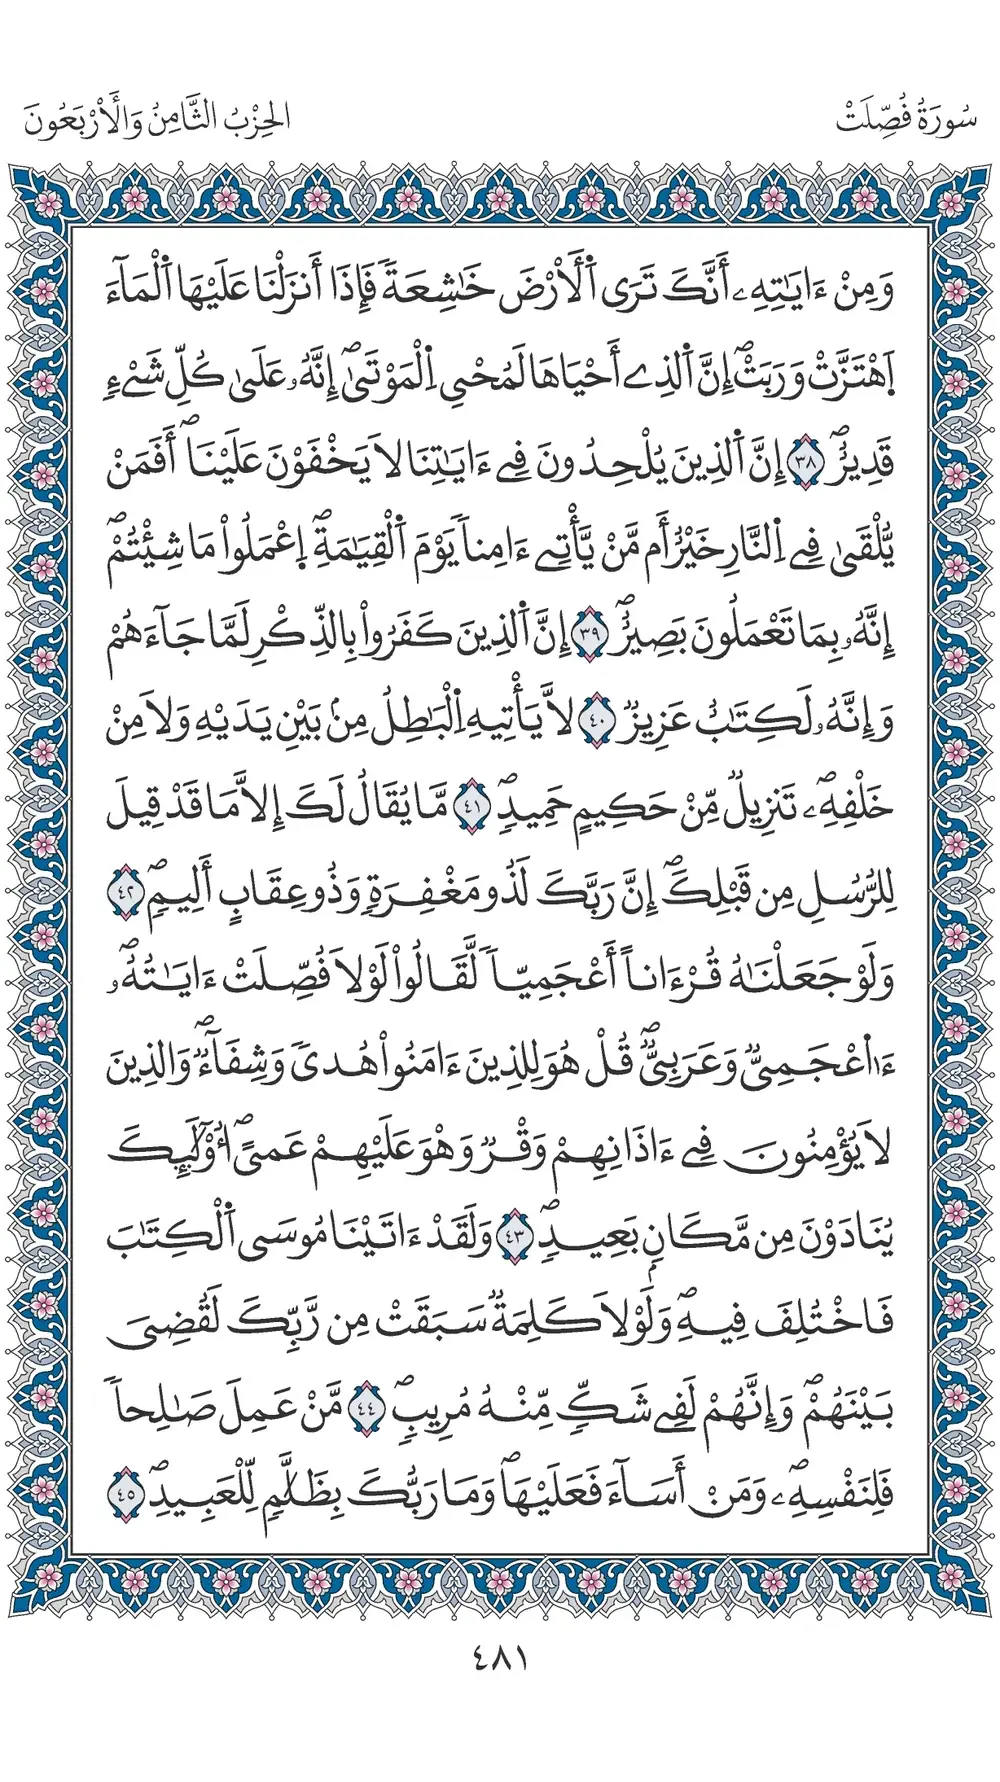 سُورَةُ فُصِّلَتْ
الحِزْبُ الثَّامِنُ وَالأَرْبَعُونَ
وَمِنْ ءَايَٰتِهِۦٓ أَنَّكَ تَرَى اَ۬لْأَرْضَ خَٰشِعَةٗ فَإِذَا أَنزَلْنَا عَلَيْهَا اَ۬لْمَآءَ
اَ۪هْتَزَّتْ وَرَبَتْۖ إِنَّ اَ۬لذِےٓ أَحْيَاهَا لَمُحْيِ اِ۬لْمَوْتَىٰٓۖ إِنَّهُۥ عَلَىٰ كُلِّ شَےْءٖ
قَدِيرٌۖ ٣٨ إِنَّ اَ۬لذِينَ يُلْحِدُونَ فِےٓ ءَايَٰتِنَا لَا يَخْفَوْنَ عَلَيْنَاۖ أَفَمَنْ
يُّلْقَىٰ فِے اِ۬لنَّارِ خَيْرٌ أَم مَّنْ يَّأْتِےٓ ءَامِناٗ يَوْمَ اَ۬لْقِيَٰمَةِۖ اِ۪عْمَلُواْ مَا شِئْتُمْۖ
إِنَّهُۥ بِمَا تَعْمَلُونَ بَصِيرٌۖ ٣٩ إِنَّ اَ۬لذِينَ كَفَرُواْ بِالذِّكْرِ لَمَّا جَآءَهُمْ
وَإِنَّهُۥ لَكِتَٰبٌ عَزِيزٞ ٤٠ لَّا يَأْتِيهِ اِ۬لْبَٰطِلُ مِنۢ بَيْنِ يَدَيْهِ وَلَا مِنْ
خَلْفِهِۦۖ تَنزِيلٞ مِّنْ حَكِيمٍ حَمِيدٖۖ ٤١ مَّا يُقَالُ لَكَ إِلَّا مَا قَدْ قِيلَ
لِلرُّسُلِ مِن قَبْلِكَۖ إِنَّ رَبَّكَ لَذُو مَغْفِرَةٖ وَذُو عِقَابٍ أَلِيمٖۖ ٤٢
وَلَوْ جَعَلْنَٰهُ قُرْءَاناً أَعْجَمِيّاٗ لَّقَالُواْ لَوْلَا فُصِّلَتْ ءَايَٰتُهُۥٓۖ
ءَا۬عْجَمِيّٞ وَعَرَبِيّٞۖ قُلْ هُوَ لِلذِينَ ءَامَنُواْ هُدىٗ وَشِفَآءٞۖ وَالذِينَ
لَا يُؤْمِنُونَ فِےٓ ءَاذَانِهِمْ وَقْرٞ وَهْوَ عَلَيْهِمْ عَمىًۖ ا۟وْلَٰٓئِكَ
يُنَادَوْنَ مِن مَّكَانِۢ بَعِيدٖۖ ٤٣ وَلَقَدْ ءَاتَيْنَا مُوسَى اَ۬لْكِتَٰبَ
فَاخْتُلِفَ فِيهِۖ وَلَوْلَا كَلِمَةٞ سَبَقَتْ مِن رَّبِّكَ لَقُضِيَ
بَيْنَهُمْۖ وَإِنَّهُمْ لَفِے شَكّٖ مِّنْهُ مُرِيبٖۖ ٤٤ مَّنْ عَمِلَ صَٰلِحاٗ
فَلِنَفْسِهِۦۖ وَمَنْ أَسَآءَ فَعَلَيْهَاۖ وَمَا رَبُّكَ بِظَلَّٰمٖ لِّلْعَبِيدِۖ ٤٥
٤٨١